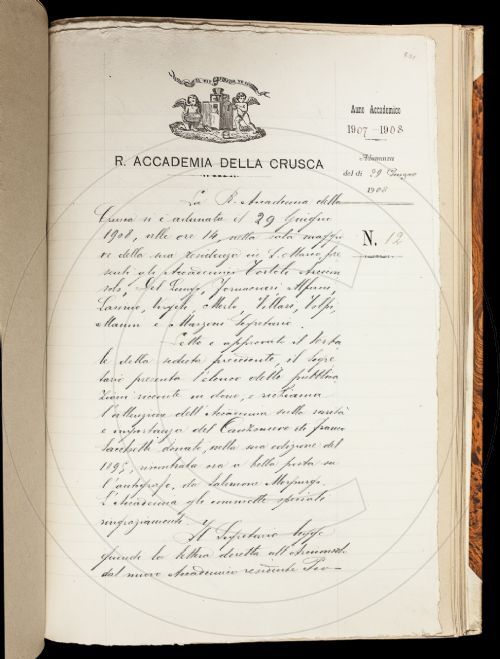 R. ACCADEMIA DELLA CRUSCA
Anno Accademico
1907-1908
Adunanza
del dì 29 Giugno
1908
N. 12
La R. Accademia della
Crusca si è adunata il 29 Giugno
1908, alle ore 14, nella sala maggio
re della sua residenza in S. Marco, pre
senti gli Accademici Tortoli Arcicon
solo, Del Lungo, Fornaciari, Alfani,
Virgili, Merlo, Villari, Volpi,
e Mazzoni Segretario.
Letto e approvato il verba
le della seduta precedente, il segre
tario presenta l'elenco delle pubblica
zioni ricevute in dono, e richiama
l'attenzione dell'Accademia sulla rarità
e importanza del Canzoniere di Franco
Sacchetti donato, nella sua edizione del
riscontrata ora a bella posta su
l'autografo, da Salomone Morpurgo.
L'Accademia gli commette speciali
ringraziamenti.
Il Segretario legge
quindi la lettera diretta all'Arciconsolo
dal nuovo Accademico residente Pio